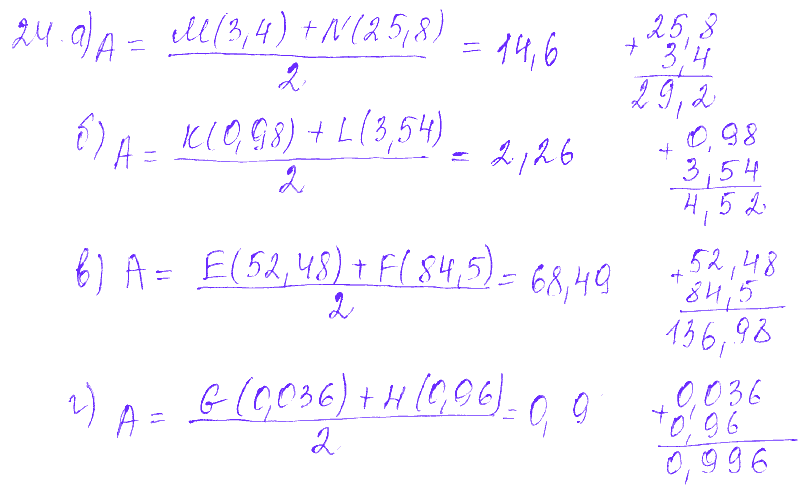 24. а) A = M(3,4) + N(25,8) / 2 = 14,6
+ 25,8
3,4
29,2
б) A = K(0,98) + L(3,54) / 2 = 2,26
+ 0,98
3,54
4,52
в) A = E(52,48) + F(84,5) / 2 = 68,49
+ 52,48
84,5
136,98
г) A = G(0,036) + H(0,96) / 2 = 0,9
+ 0,036
0,96
0,996